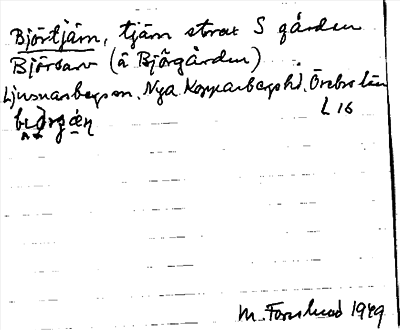 Björtjärn, tjärn strax S gården
Björsarv (å Björgården)
Ljusnarsbergs sn. Nya Kopparbergs hd. Örebro län
L 16
M. Fornelund 1949